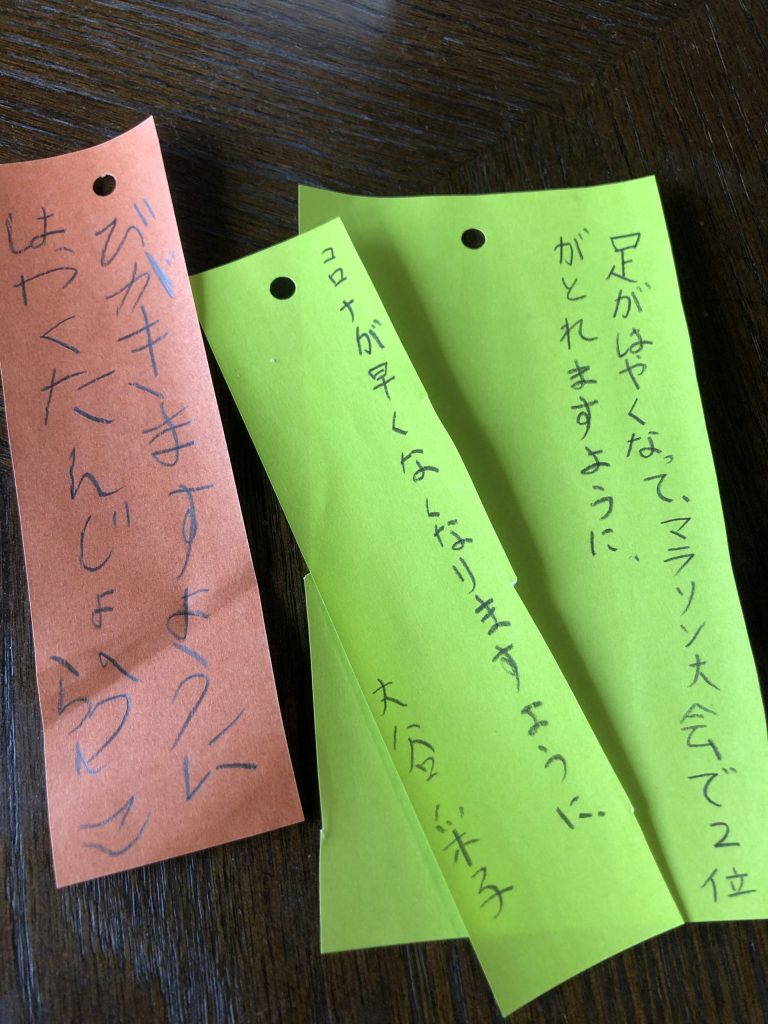 足がはやくなって、マラソン大会で2位
がとれますように、
コロナが早くなくなりますように、
大谷
はやくだんじょう
びがきますように